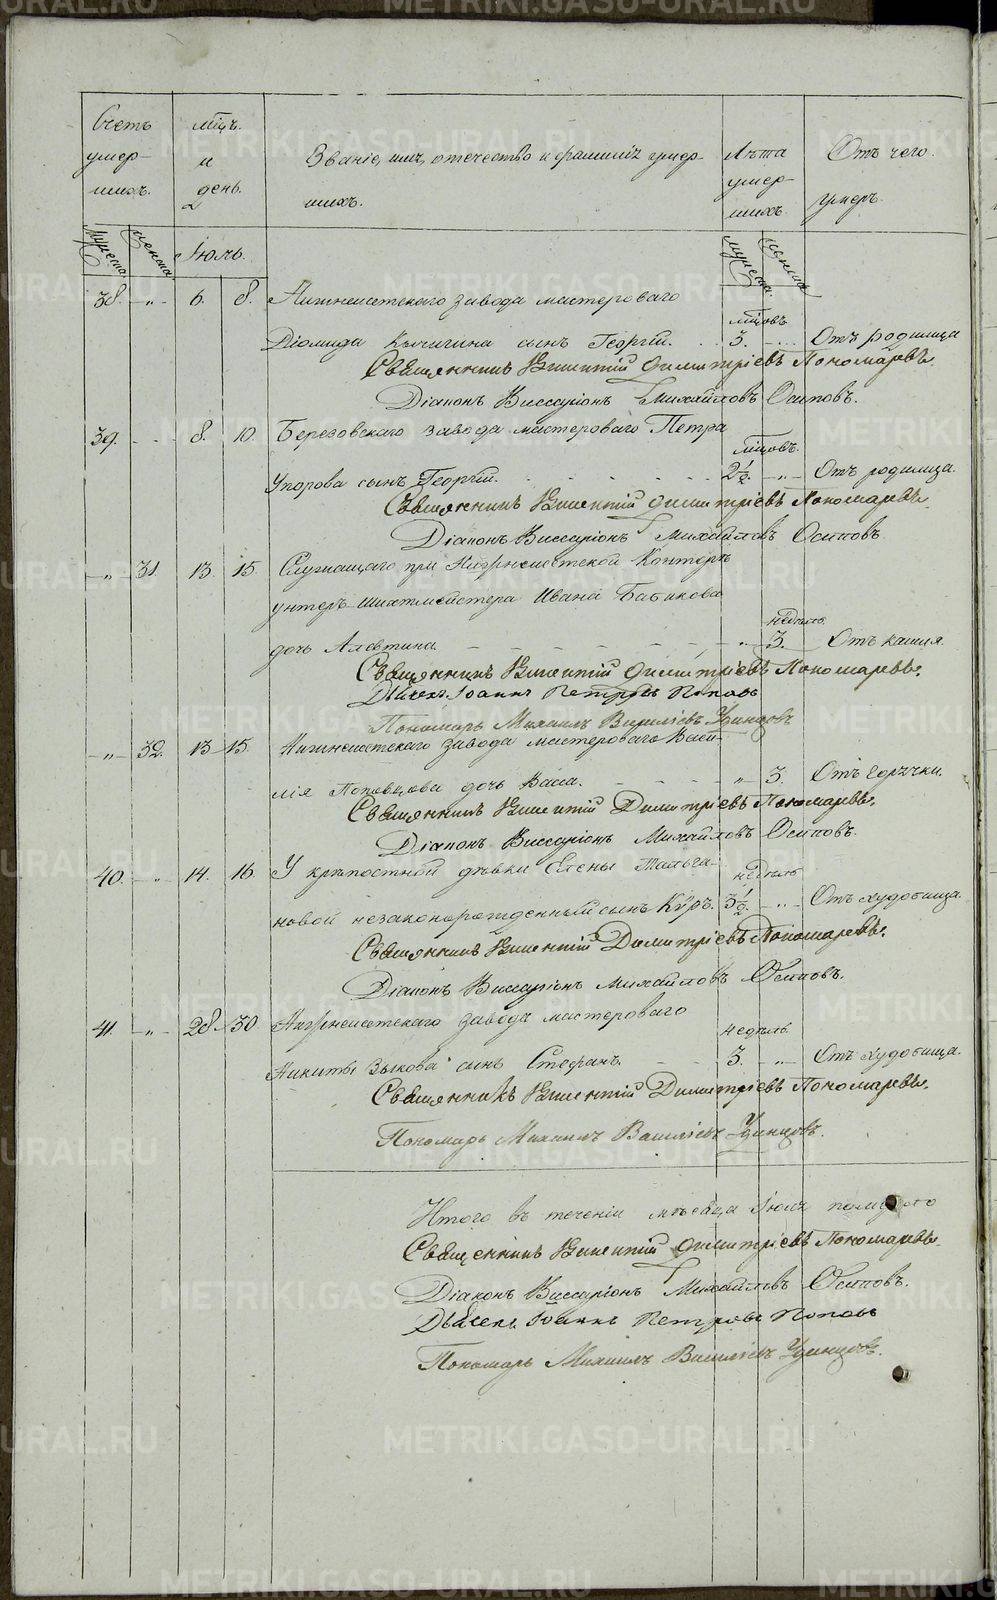 Счетъ умер-шихъ.
мцъ. и день.
Званіе, имя, отечество и фамилія умер-
шихъ.
Лѣта умер-шихъ.
Отъ чего умеръ.
мужеска. женска. Іюль. мужеска. женска.
38. -„- 6. 8. Нижнеисетскаго завода мастероваго
мцовъ
Діомида сынъ Георгій. 3. Отъ родимца
Священникъ Викентій Димитріевъ Пономаревъ.
Діаконъ Виссаріонъ Михайловъ Осиповъ.
39. 8. 10. Березовскаго завода мастероваго Петра
мцовъ.
Упорова сынъ Георгій. 2½. -„- Отъ родимца.
Священникъ Викентій Димитріевъ Пономаревъ.
Діаконъ Виссаріонъ Михайловъ Осиповъ
-„- 31. 13. 15. Служащаго при Нижнеисетской Конторѣ
унтеръ-шихтмейстера Ивана Бабикова
недѣль
дочь Алевтина. „ 3. Отъ кашля.
Священникъ Викентій Димитріевъ Пономаревъ.
Дьячекъ Іоаннъ Петровъ Поповъ
Пономарь Михаилъ Василіевъ Удинцовъ
-„- 32. 13 15. Нижнеисетскаго завода мастероваго Васи-
лія дочь Васа. „ 3. Отъ горячки.
Священникъ Викентій Димитріевъ Пономаревъ.
Діаконъ Виссаріонъ Михайловъ Осиповъ.
40. -„- 14. 16. У крѣпостной дѣвки Елены
недѣль
новой незаконорожденный сынъ Кѵръ. 3½ -„- Отъ худобища.
Священникъ Викентій Димитріевъ Пономаревъ.
Діаконъ Виссаріонъ Михайловъ Осиповъ.
41. -„- 28. 30. Нижнеисетскаго завода мастероваго
недѣль
Никиты Зыкова сынъ Стефанъ. 3. -„- Отъ худобища.
Священникъ Викентій Димитріевъ Пономаревъ.
Пономарь Михаилъ Василіевъ Удинцовъ.
Итого въ теченіи мѣсяца Іюля
Священникъ Викентій Димитріевъ Пономаревъ
Діаконъ Виссаріонъ Михайловъ Осиповъ.
Дьячекъ Іоаннъ Петровъ Поповъ
Пономарь Михаилъ Василіевъ Удинцовъ.
METRIKI.GASO-URAL.RU